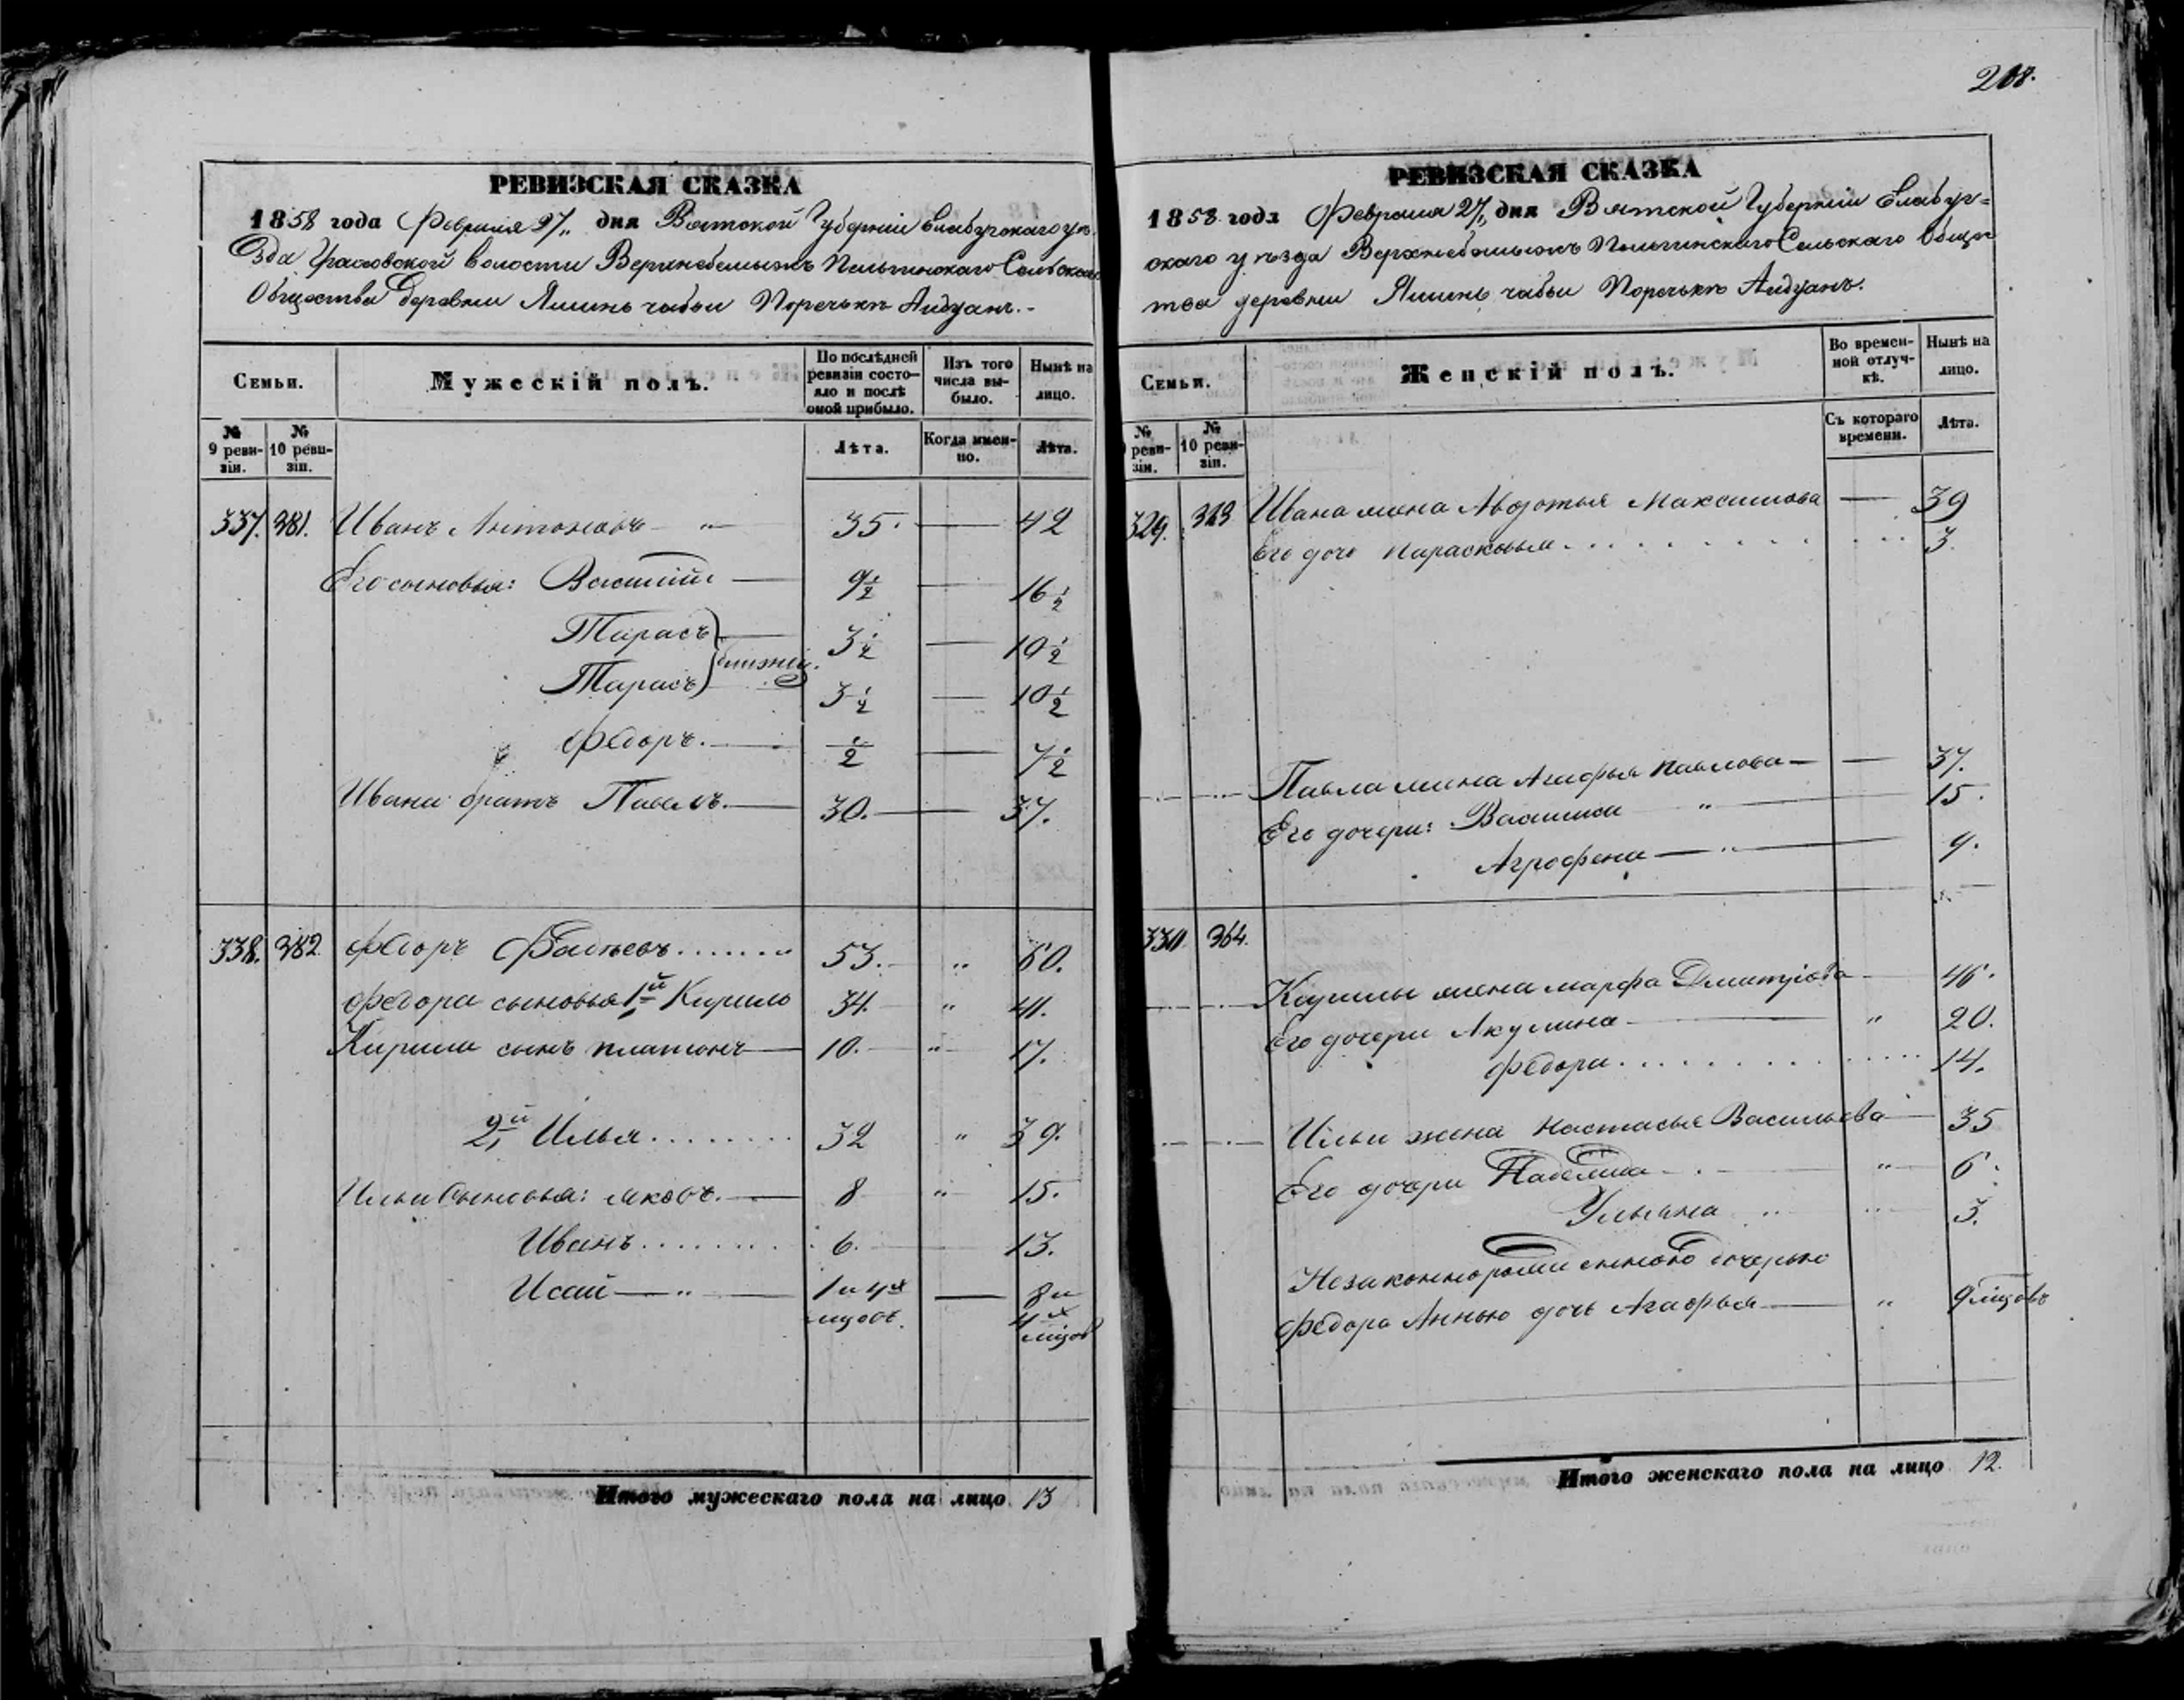 208.
РЕВИЗСКАЯ СКАЗКА
1858 года Февраля 27 дня Вятской Губерніи Елабугскаго уѣ
зда Граховской волости Верхнебемыжъ Пельгинскаго Сельскаго
Общества деревни Ямшнь чабьи Поречькѣ Айдуанъ.
Семьи.
Мужескій полъ.
По послѣдней ревизіи состояло и послѣ оной прибыло.
Изъ того числа выбыло.
Нынѣ на лицо.
№ 9 ревизіи.
№ 10 ревизіи.
Лѣта.
Когда именно.
Лѣта.
337. 381. Иванъ Антоновъ — " 35. — 42
Его сыновья: Василій — 9½ — 16½
Тарасъ — 3½ — 10½
близнец.
Тарасъ 3½ — 10½
Федоръ. — ½ — 7½
Ивана братъ Павелъ. — 30. — 37.
338. 382 Федоръ Фатѣевъ....... 53. " 60.
Федора сыновья 1й Кирило 34. " 41.
Кирила сынъ платонъ — 10. " 17.
2й Илья........ 32 " 39.
Ильи Сыновья: яковъ. — 8 " 15.
Иванъ........ 6. — 13.
Исай — " — 1 и 4х — 8 и
мцовъ. 4х
мцов
Итого мужескаго пола на лицо 13
РЕВИЗСКАЯ СКАЗКА
1858 года Февраля 27 дня Вятской Губерніи Елабуг=
скаго уѣзда Верхнебемыжъ Пельгинскаго Сельскаго Общес
тва деревни Ямшнь чабьи Поречькѣ Айдуанъ.
Семьи.
Женскій полъ.
Во временной отлучкѣ.
Нынѣ на лицо.
№ 9 ревизіи.
№ 10 ревизіи.
Съ котораго времени.
Лѣта.
329. 323 Ивана жена Авдотья Максимова — 39
Его дочь Парасковья........ 3.
Павла жена Агафья Павлова — — 37.
Его дочери: Василиса " — 15.
Агрофена — " — 9.
330. 364.
Кирилы жена марфа Дмитріева — 46.
Его дочери Акулина — " 20.
Федора........ 14.
Ильи жена Настасья Васильева — 35
Его дочери — " 6.
Ульяна " " 3.
Незаконнорожденною дочерью
Федора Анною дочь Агафья — " 9 мцовъ
Итого женскаго пола на лицо 12.